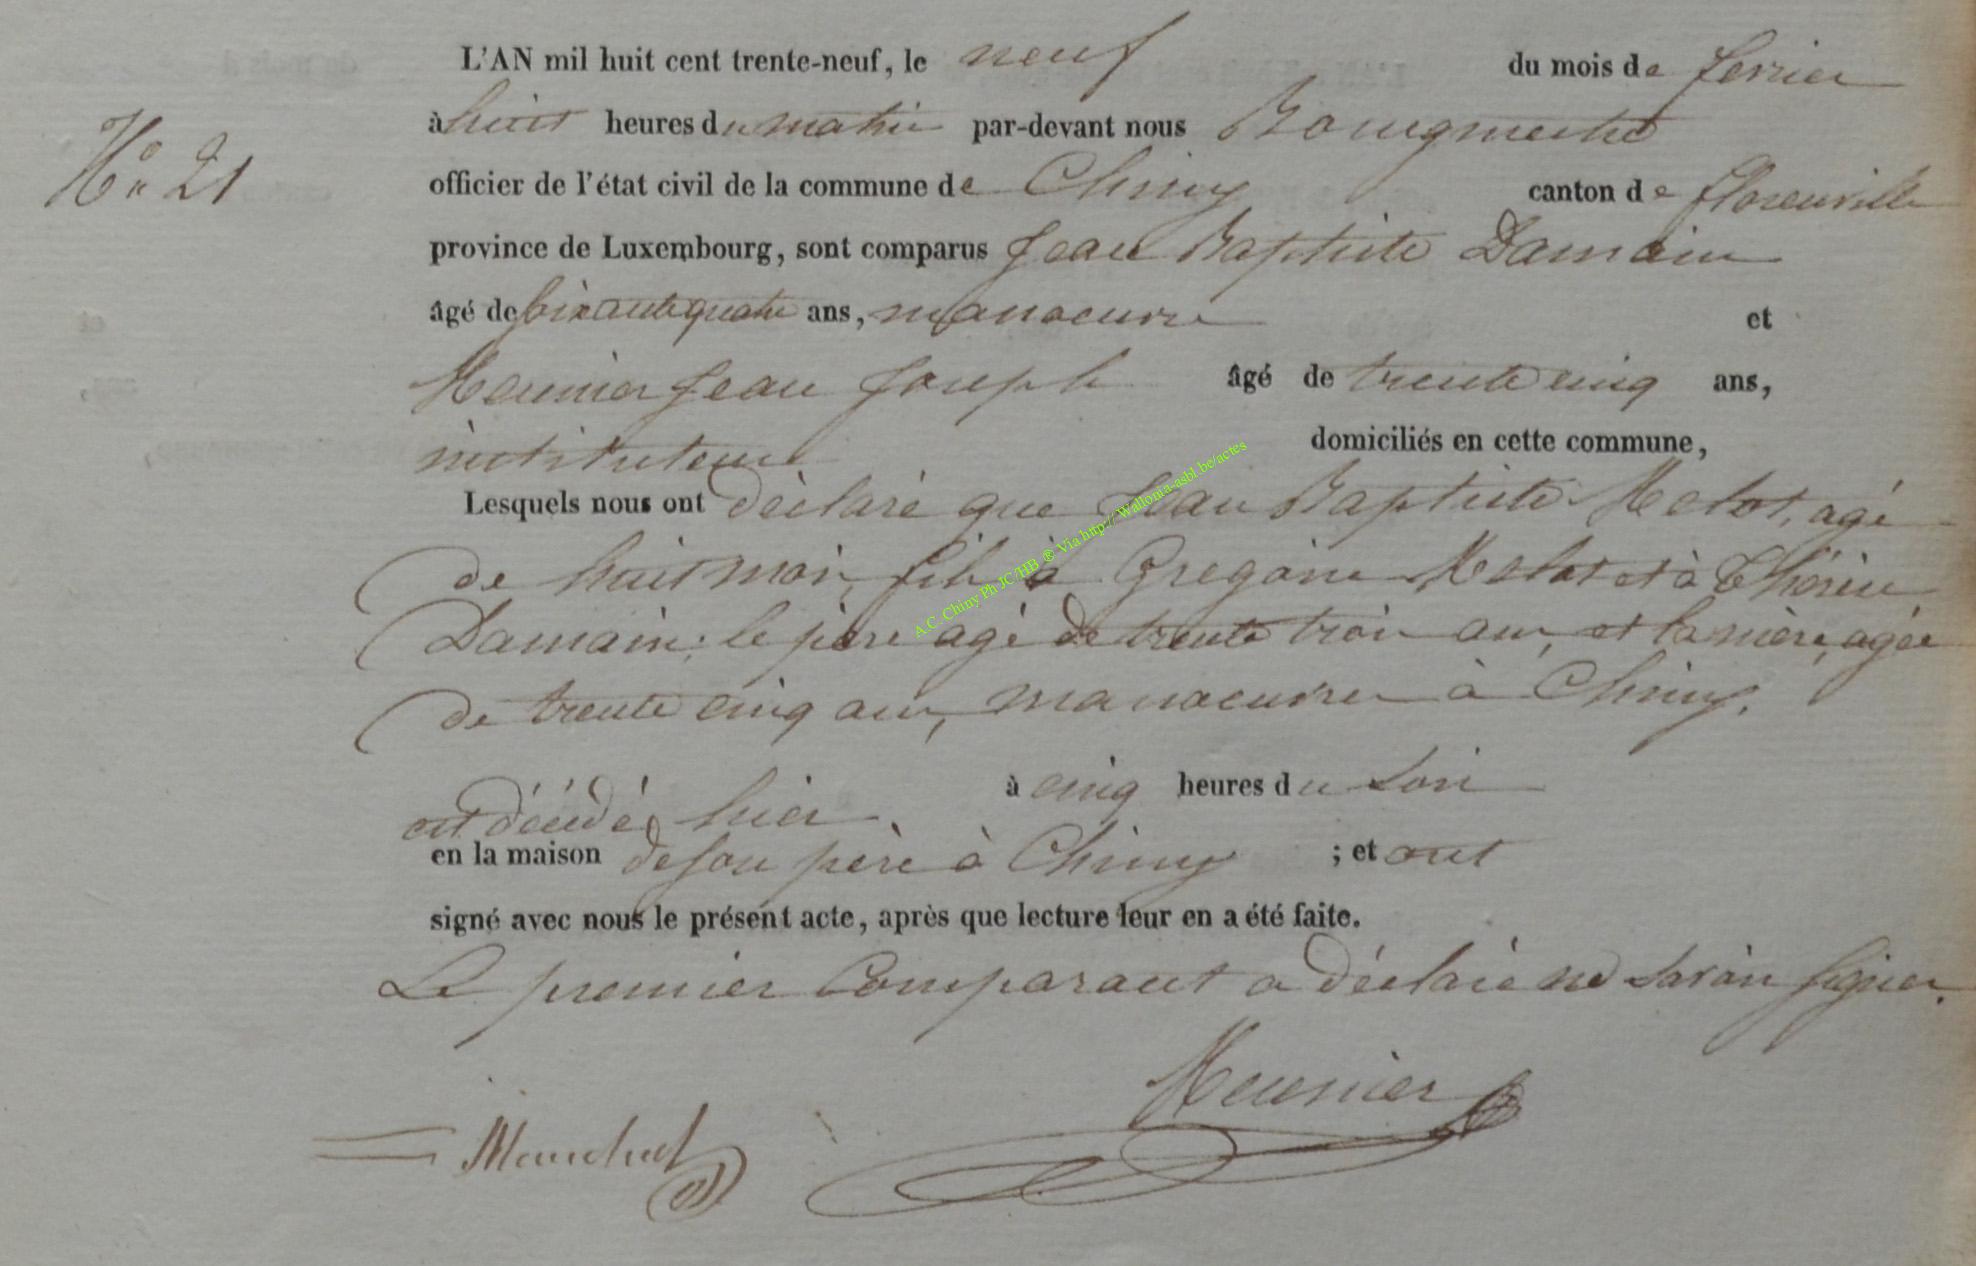 L'AN mil huit cent trente-neuf, le neuf du mois de fevrier
N° 21
à huit heures du matin par-devant nous Bourgmestre
officier de l'état civil de la commune de Chiny canton de florenville
province de Luxembourg, sont comparus Jean Baptiste Damain
âgé de soixante quatre ans, manoeuvre et
Meunier Jean Joseph âgé de trente cinq ans,
instituteur domiciliés en cette commune,
Lesquels nous ont déclaré que Jean Baptiste Melot, agé
de huit mois, fils à Gregoire Melot et à Thérèse
Damain; le père agé de trente trois ans, et la mère, agée
de trente cinq ans, manoeuvres à Chiny.
est décédé hier à cinq heures du soir
en la maison de son père à Chiny ; et ont
signé avec nous le présent acte, après que lecture leur en a été faite.
Le premier Comparant a déclaré ne savoir signer.
Meunier
A.C. Chiny Ph JC/HB ® Via http://Wallonia-asbl.be/actes